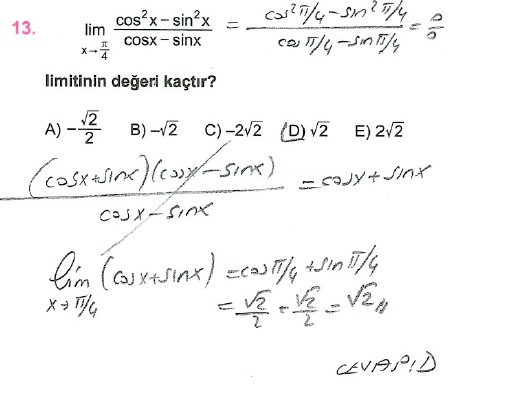 13. lim x→π/4 (cos²x − sin²x)/(cosx − sinx) = (cos²π/4 − sin²π/4)/(cosπ/4 − sinπ/4) = 0/0
limitinin değeri kaçtır?
A) −√2/2 B) −√2 C) −2√2 D) √2 E) 2√2
(cosx+sinx)(cosx−sinx)/(cosx−sinx) = cosx+sinx
lim x→π/4 (cosx+sinx) = cosπ/4 + sinπ/4
= √2/2 + √2/2 = √2//
CEVAP: D